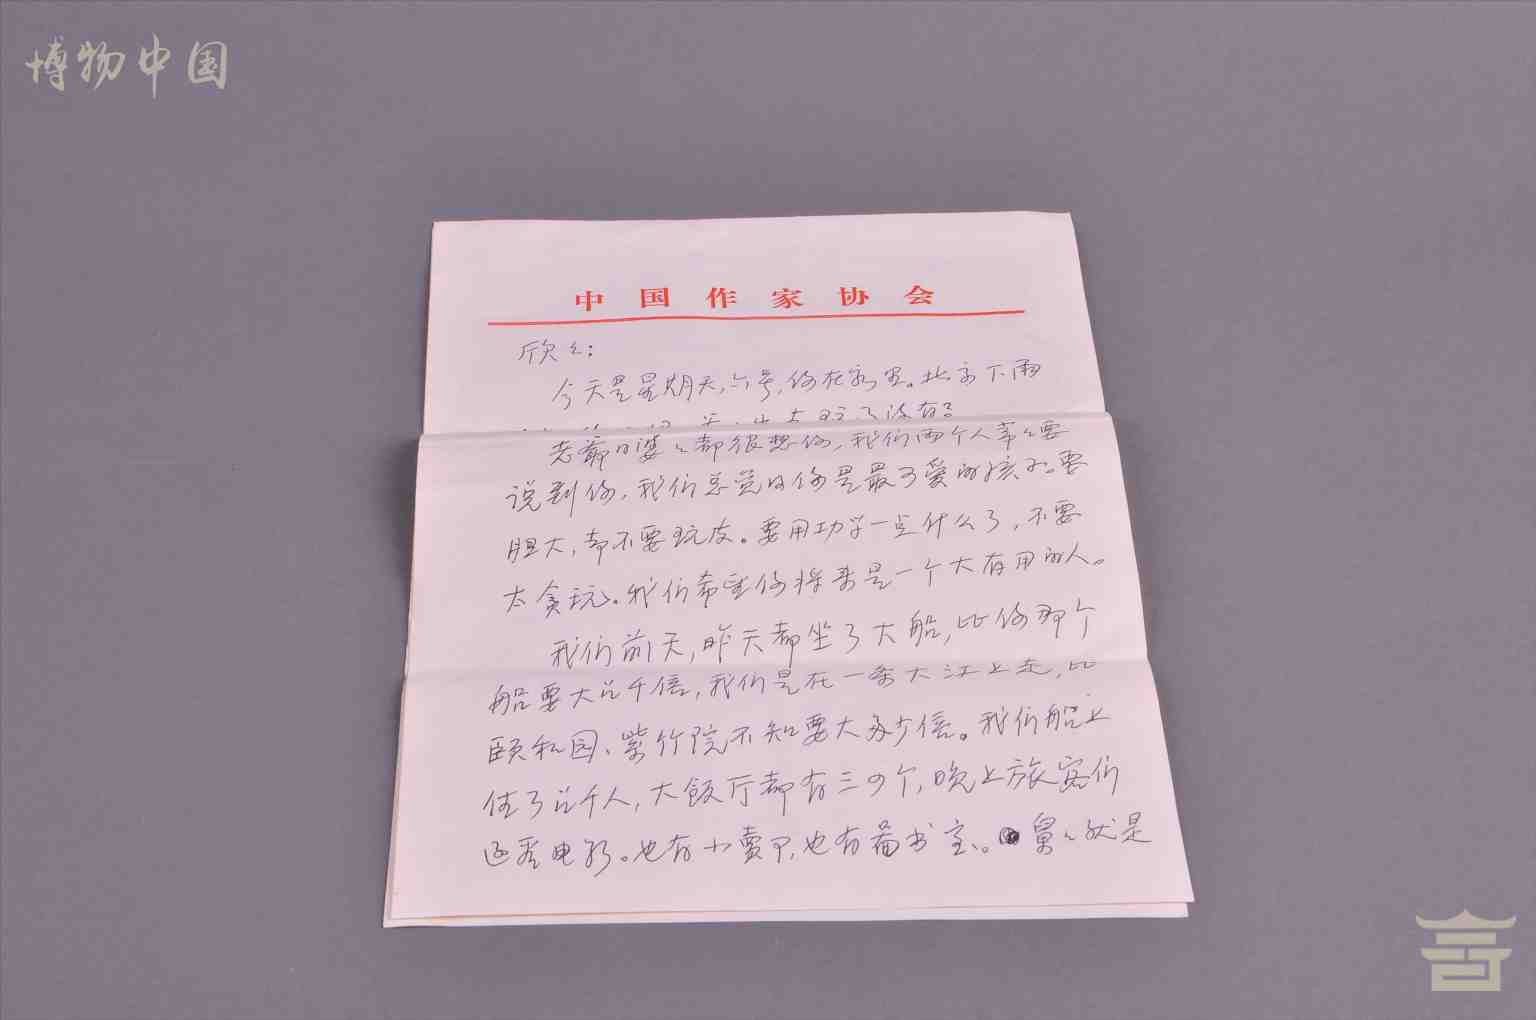 博物中国
中国作家协会
欣欣:
今天是星期天,六号,你在家里。北京下雨
老爷和婆婆都很想你,我们两个人常常要
说到你,我们总觉得你是最可爱的孩子。要
胆大,却不要玩皮。要用功学一点什么了,不要
太贪玩。我们希望你将来是一个大有用的人。
我们前天,昨天都坐了大船,比你那个
船要大几千倍,我们是在一条大江上走,比
颐和园、紫竹院不知要大多少倍。我们船上
住了几千人,大饭厅都有三四个,晚上旅客们
还看电影。也有小卖部,也有看书室。舅舅就是